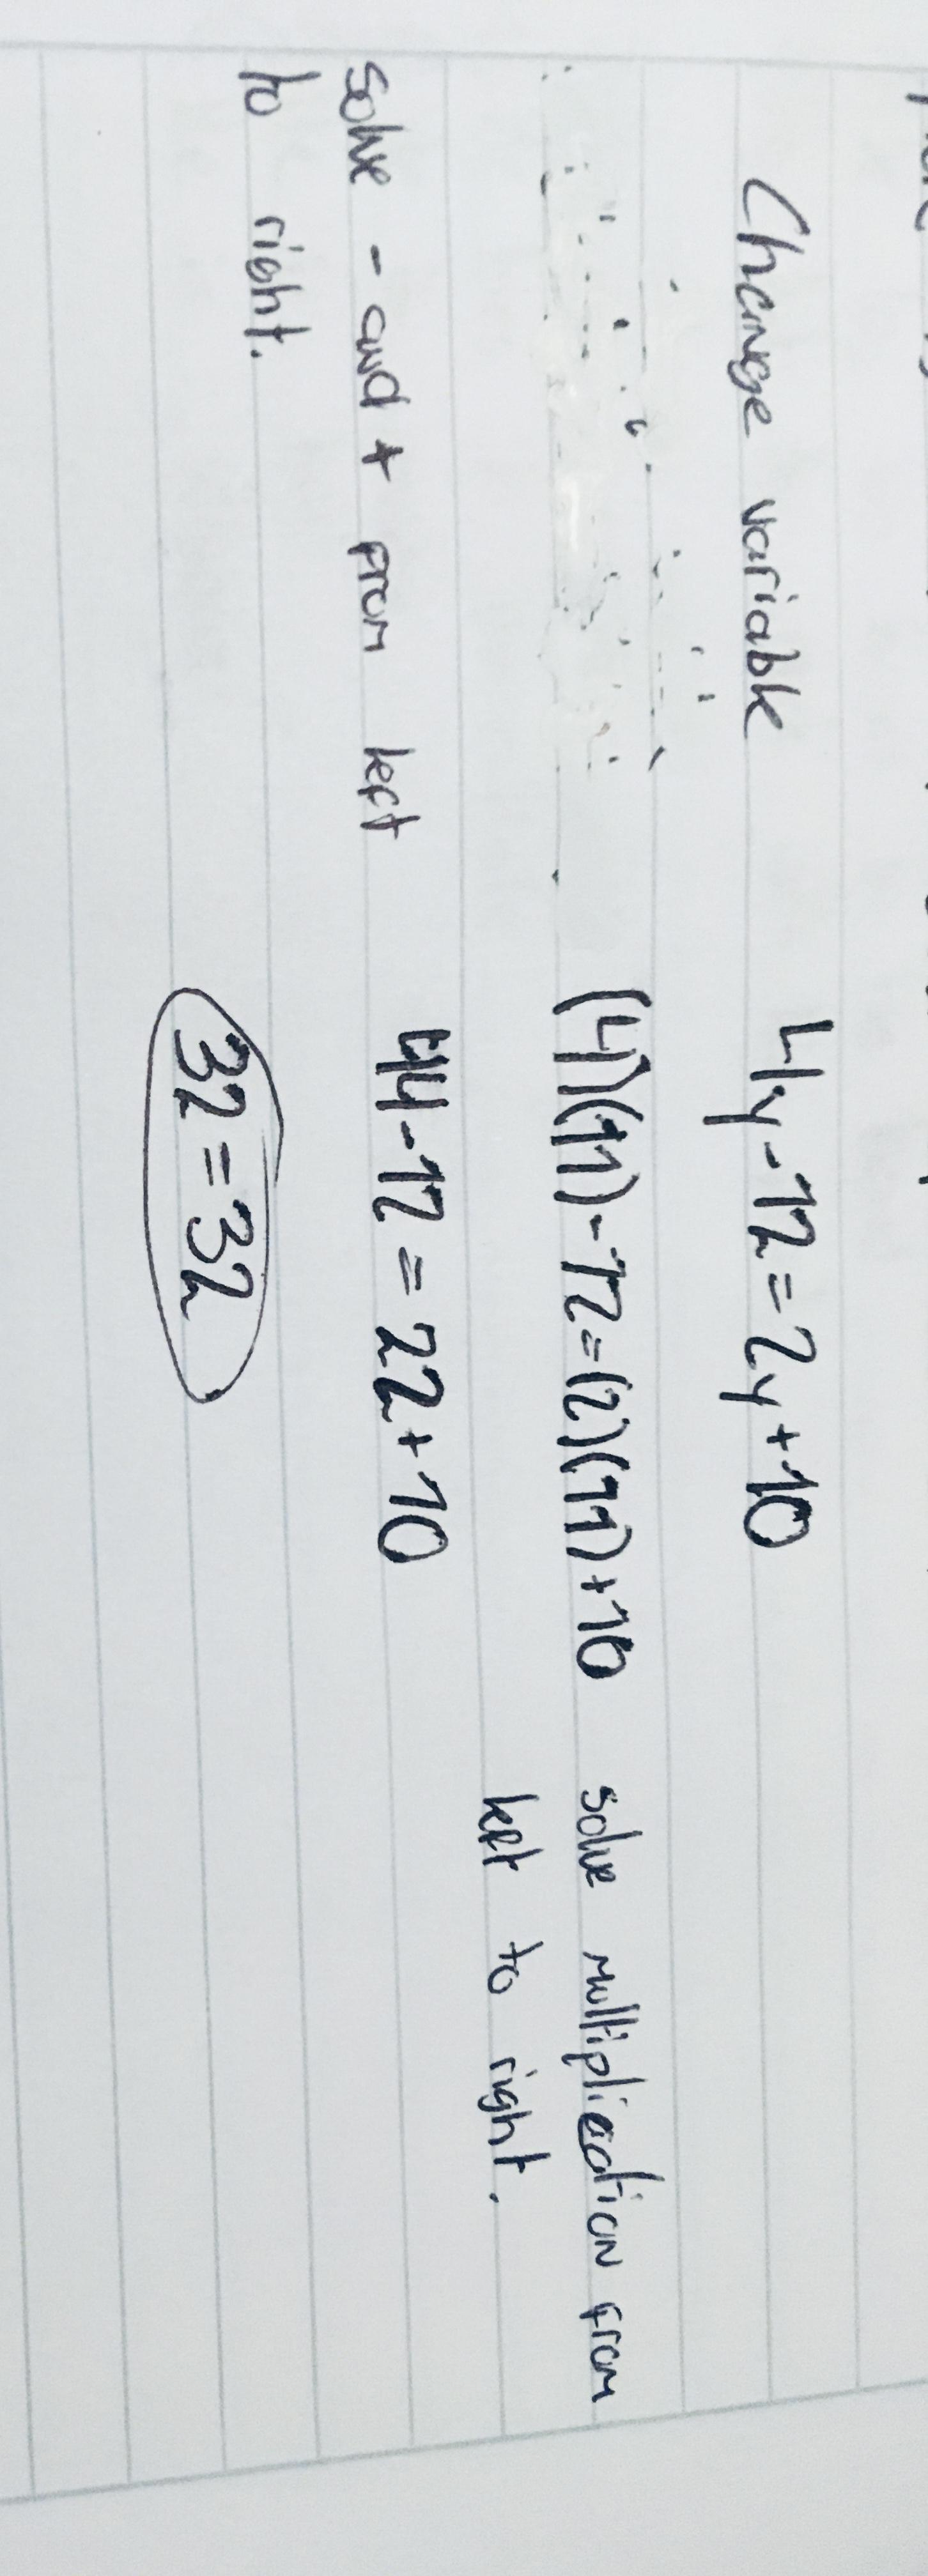 Change variable
4y-12=2y+10
(4)(11)-12=(2)(11)+10
solve multiplication from
left to right.
solve - and + from left
to right.
44-12=22+10
32=32